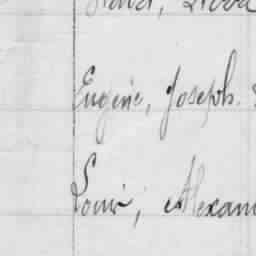 Eugène, Joseph.
Louis, Alexan